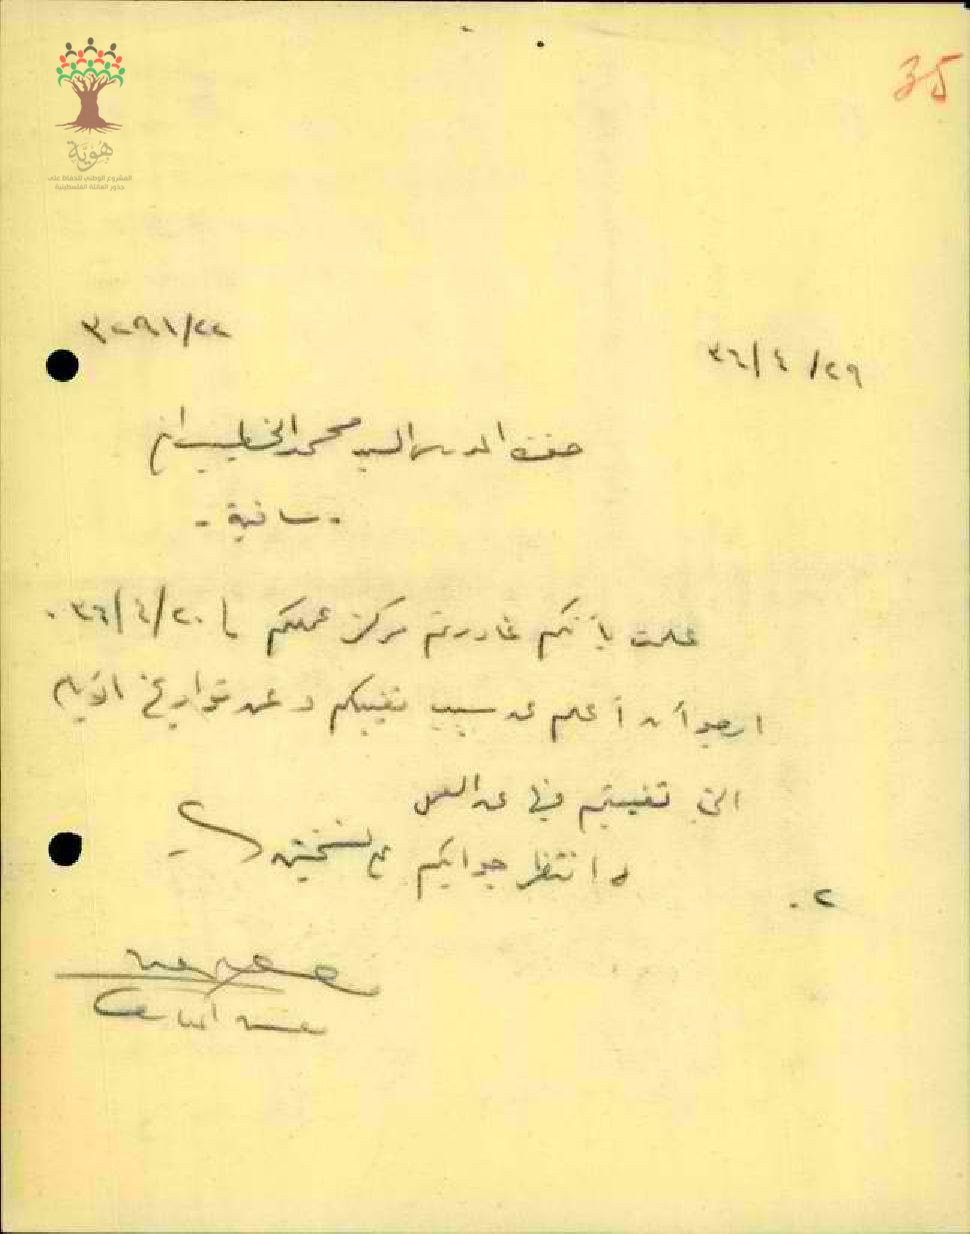 35
هُوِيَّة
المشروع الوطني للحفاظ على
جذور العائلة الفلسطينية
٢٢/٣٢٩١
٢٩/٤/٣٦
حضرة المدرس السيد محمد الخطيب
علمت بأنكم غادرتم مركز عملكم في ٢٠/٤/٣٦.
ارجو أن أعلم عن سبب تغيبكم وعن تواريخ الأيام
التي تغيبتم فيها عن العمل
٢. وانتظر جوابكم على نسختين
مفتش المعارف